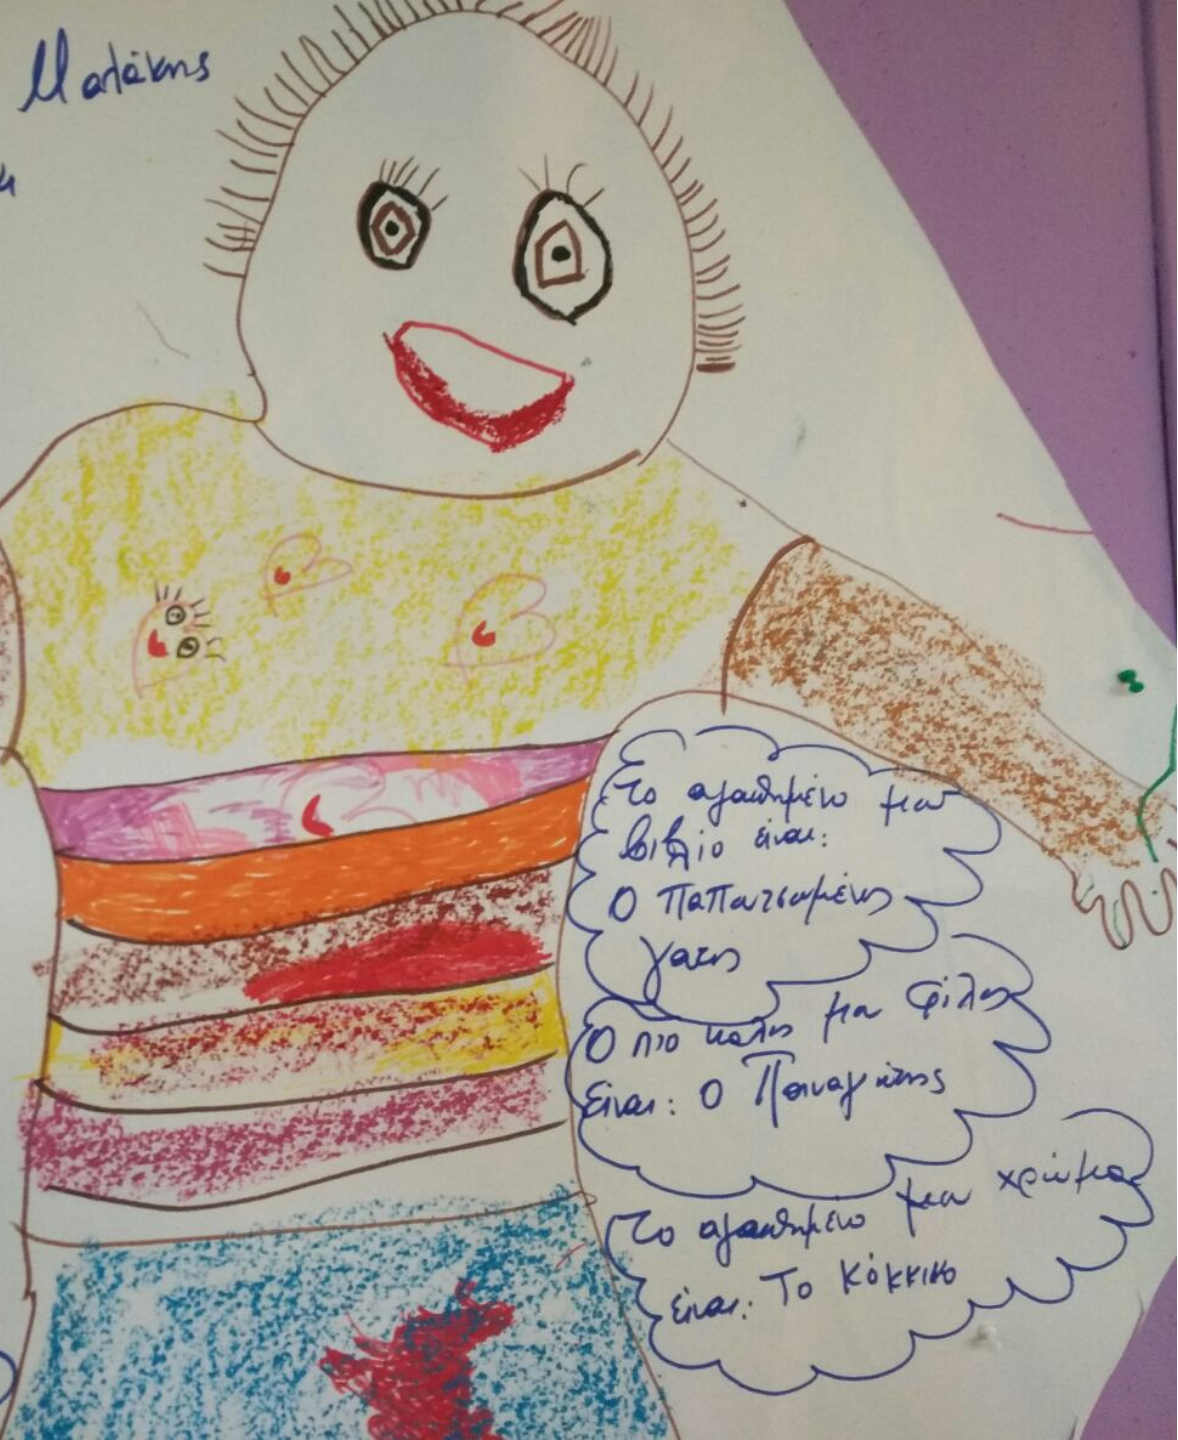 Μαλάκης
Το αγαπημένο μου
βιβλίο είναι:
Ο Παπουτσωμένος
γάτος
Ο πιο καλός μου φίλος
είναι: Ο Παναγιώτης
Το αγαπημένο μου χρώμα
είναι: Το κόκκινο